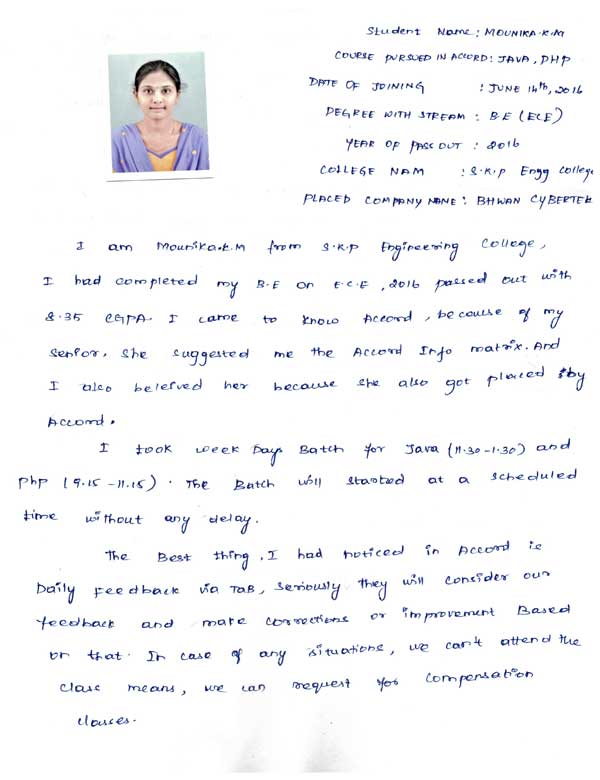 Student Name: MOUNIKA.K.M
COURSE PURSUED IN ACCORD: JAVA, PHP
DATE OF JOINING : JUNE 14th, 2016
DEGREE WITH STREAM : B.E (ECE)
YEAR OF PASS OUT : 2016
COLLEGE NAM : S.K.P Engg College
PLACED COMPANY NAME: BHWAN CYBERTEK
I am Mounika.K.M from S.K.P Engineering College,
I had completed my B.E on E.C.E, 2016 passed out with
8.35 CGPA. I came to know Accord, because of my
senior, she suggested me the Accord Info matrix. And
I also beleived her because she also got placed by
Accord.
I took week Days Batch for Java (11.30-1.30) and
Php (9.15-11.15). The Batch will started at a scheduled
time without any delay.
The Best thing, I had noticed in Accord is
Daily Feedback via TaB, Seriously they will consider our
feedback and make corrections or improvement Based
on that. In case of any situations, we can't attend the
class means, we can request for compensation
classes.